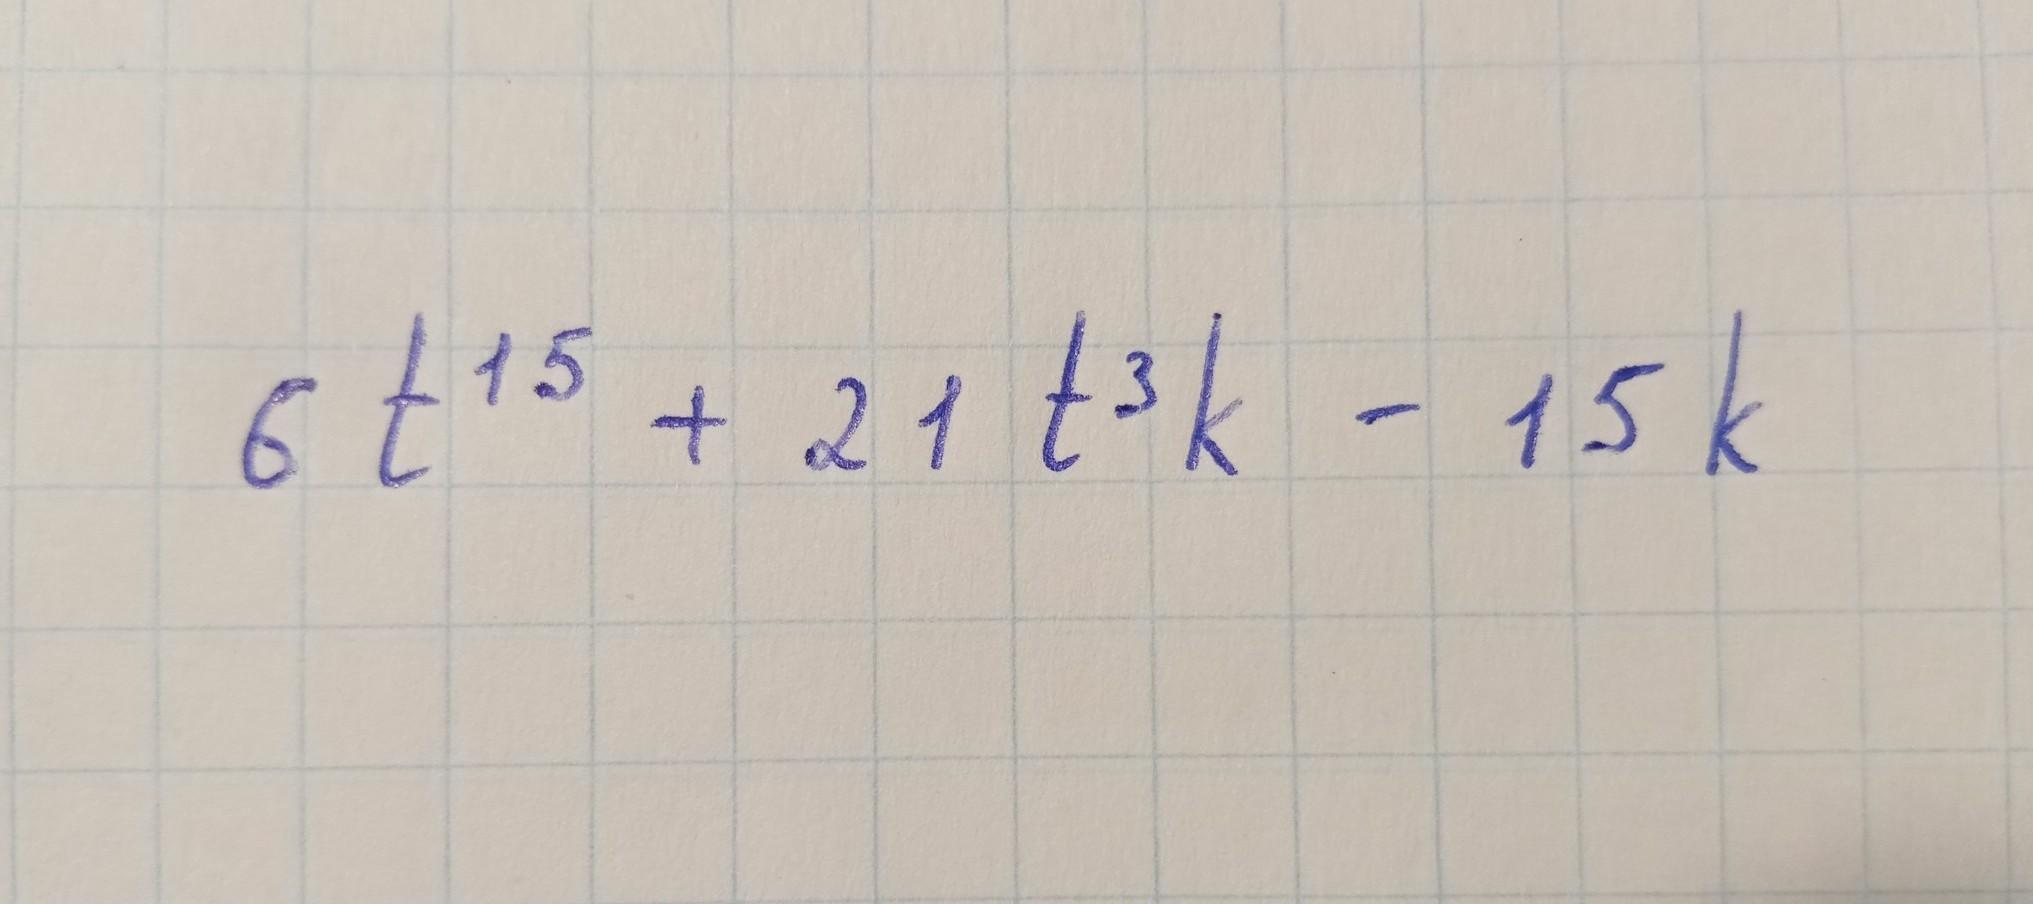 6t¹⁵ + 21t³k - 15k